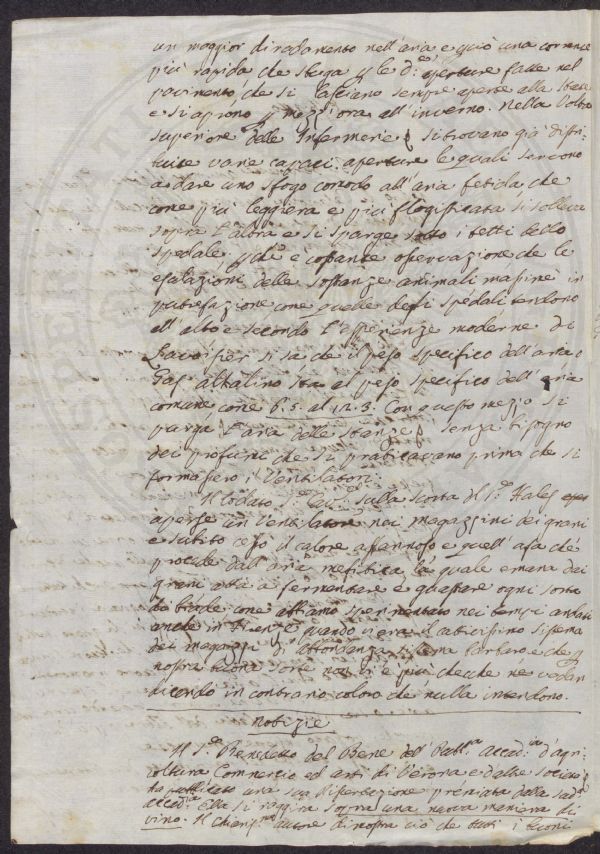 un maggior diradamento nell'aria e quió una corrente
più rapida che sbuga p le d.e aperture fatte nel
pavimento che si lasciano sempre aperte alla state
e si aprono p mezz'ora all'inverno. Nella Volta
superiore delle Infermerie si trovano già distri-
buite varie capaci aperture le quali servono
a dare uno sfogo comodo all'aria fetida che
come più leggiera e più flogisticata si solleva
sopra l'altra e si sparge sotto i tetti dello
spedale, è costante osservazione che le
esalazioni delle sostanze animali massime in
putrefazione come quelle degli spedali tendono
all'alto e secondo l'esperienze moderne di
Lavoisier si sa che il peso specifico dell'aria o
Gas alkalino sta al peso specifico dell'aria
comune come 6. 5. al 12. 3. Con questo mezzo si
purga l'aria delle stanze senza bisogno
dei profumi che si praticavano prima che si
formassero i Ventilatori.
Il lodato S.r Cav.e sulla scorta del S.r Hales
aperse un Ventilatore nei magazzini dei grani
e subito cessò il calore affannoso e quell'afa che
procede dall'aria mefitica la quale emana dai
grani atti a fermentare e guastare ogni sorta
di biade come abbiamo sperimentato nei tempi andati
anche in Firenze quando v'era il cattivissimo sistema
dei magazzi di abbondanza sistema barbaro e che p
nostra buona sorte non vi è più checche ne vadan
dicendo in contrario coloro che nulla intendono.
Notizie
Il S.r Benedetto del Bene dell'Pubb.a Accad.ia d'agri-
coltura Commercio ed arti di Verona e d'altre società
ha pubblicato una sua dissertazione premiata dalla sud.a
Accad.ia Ella si raggira sopra una nuova maniera di
vino. Il chiaris.mo autore dimostra ciò che tutti i buoni